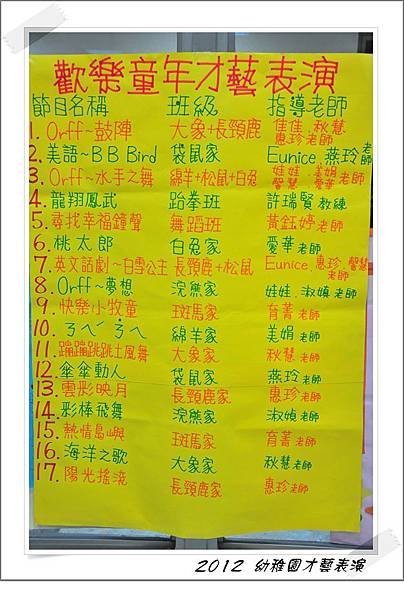 歡樂童年才藝表演
節目名稱 班級 指導老師
1. Orff~鼓陣 大象+長頸鹿 佳佳.秋慧 惠珍老師
2. 美語~B B Bird 袋鼠家 Eunice.燕玲老師
3. Orff~水手之舞 綿羊+松鼠+白兔 娃娃.美娟 智慧.愛華老師
4. 龍翔鳳武 跆拳班 許瑞賢教練
5. 尋找幸福鐘聲 舞蹈班 黃鈺婷老師
6. 桃太郎 白兔家 愛華老師
7. 英文話劇~白雪公主 長頸鹿+松鼠 Eunice.惠珍.智慧老師
8. Orff~夢想 浣熊家 娃娃.淑媜老師
9. 快樂小牧童 斑馬家 育菁老師
10. ㄋㄟˋㄋㄟ 綿羊家 美娟老師
11. 蹦蹦跳跳土風舞 大象家 秋慧老師
12. 傘傘動人 袋鼠家 燕玲老師
13. 雲彩映月 長頸鹿家 惠珍老師
14. 彩棒飛舞 浣熊家 淑媜老師
15. 熱情島嶼 斑馬家 育菁老師
16. 海洋之歌 大象家 秋慧老師
17. 陽光搖滾 長頸鹿家 惠珍老師
2012 幼稚園才藝表演